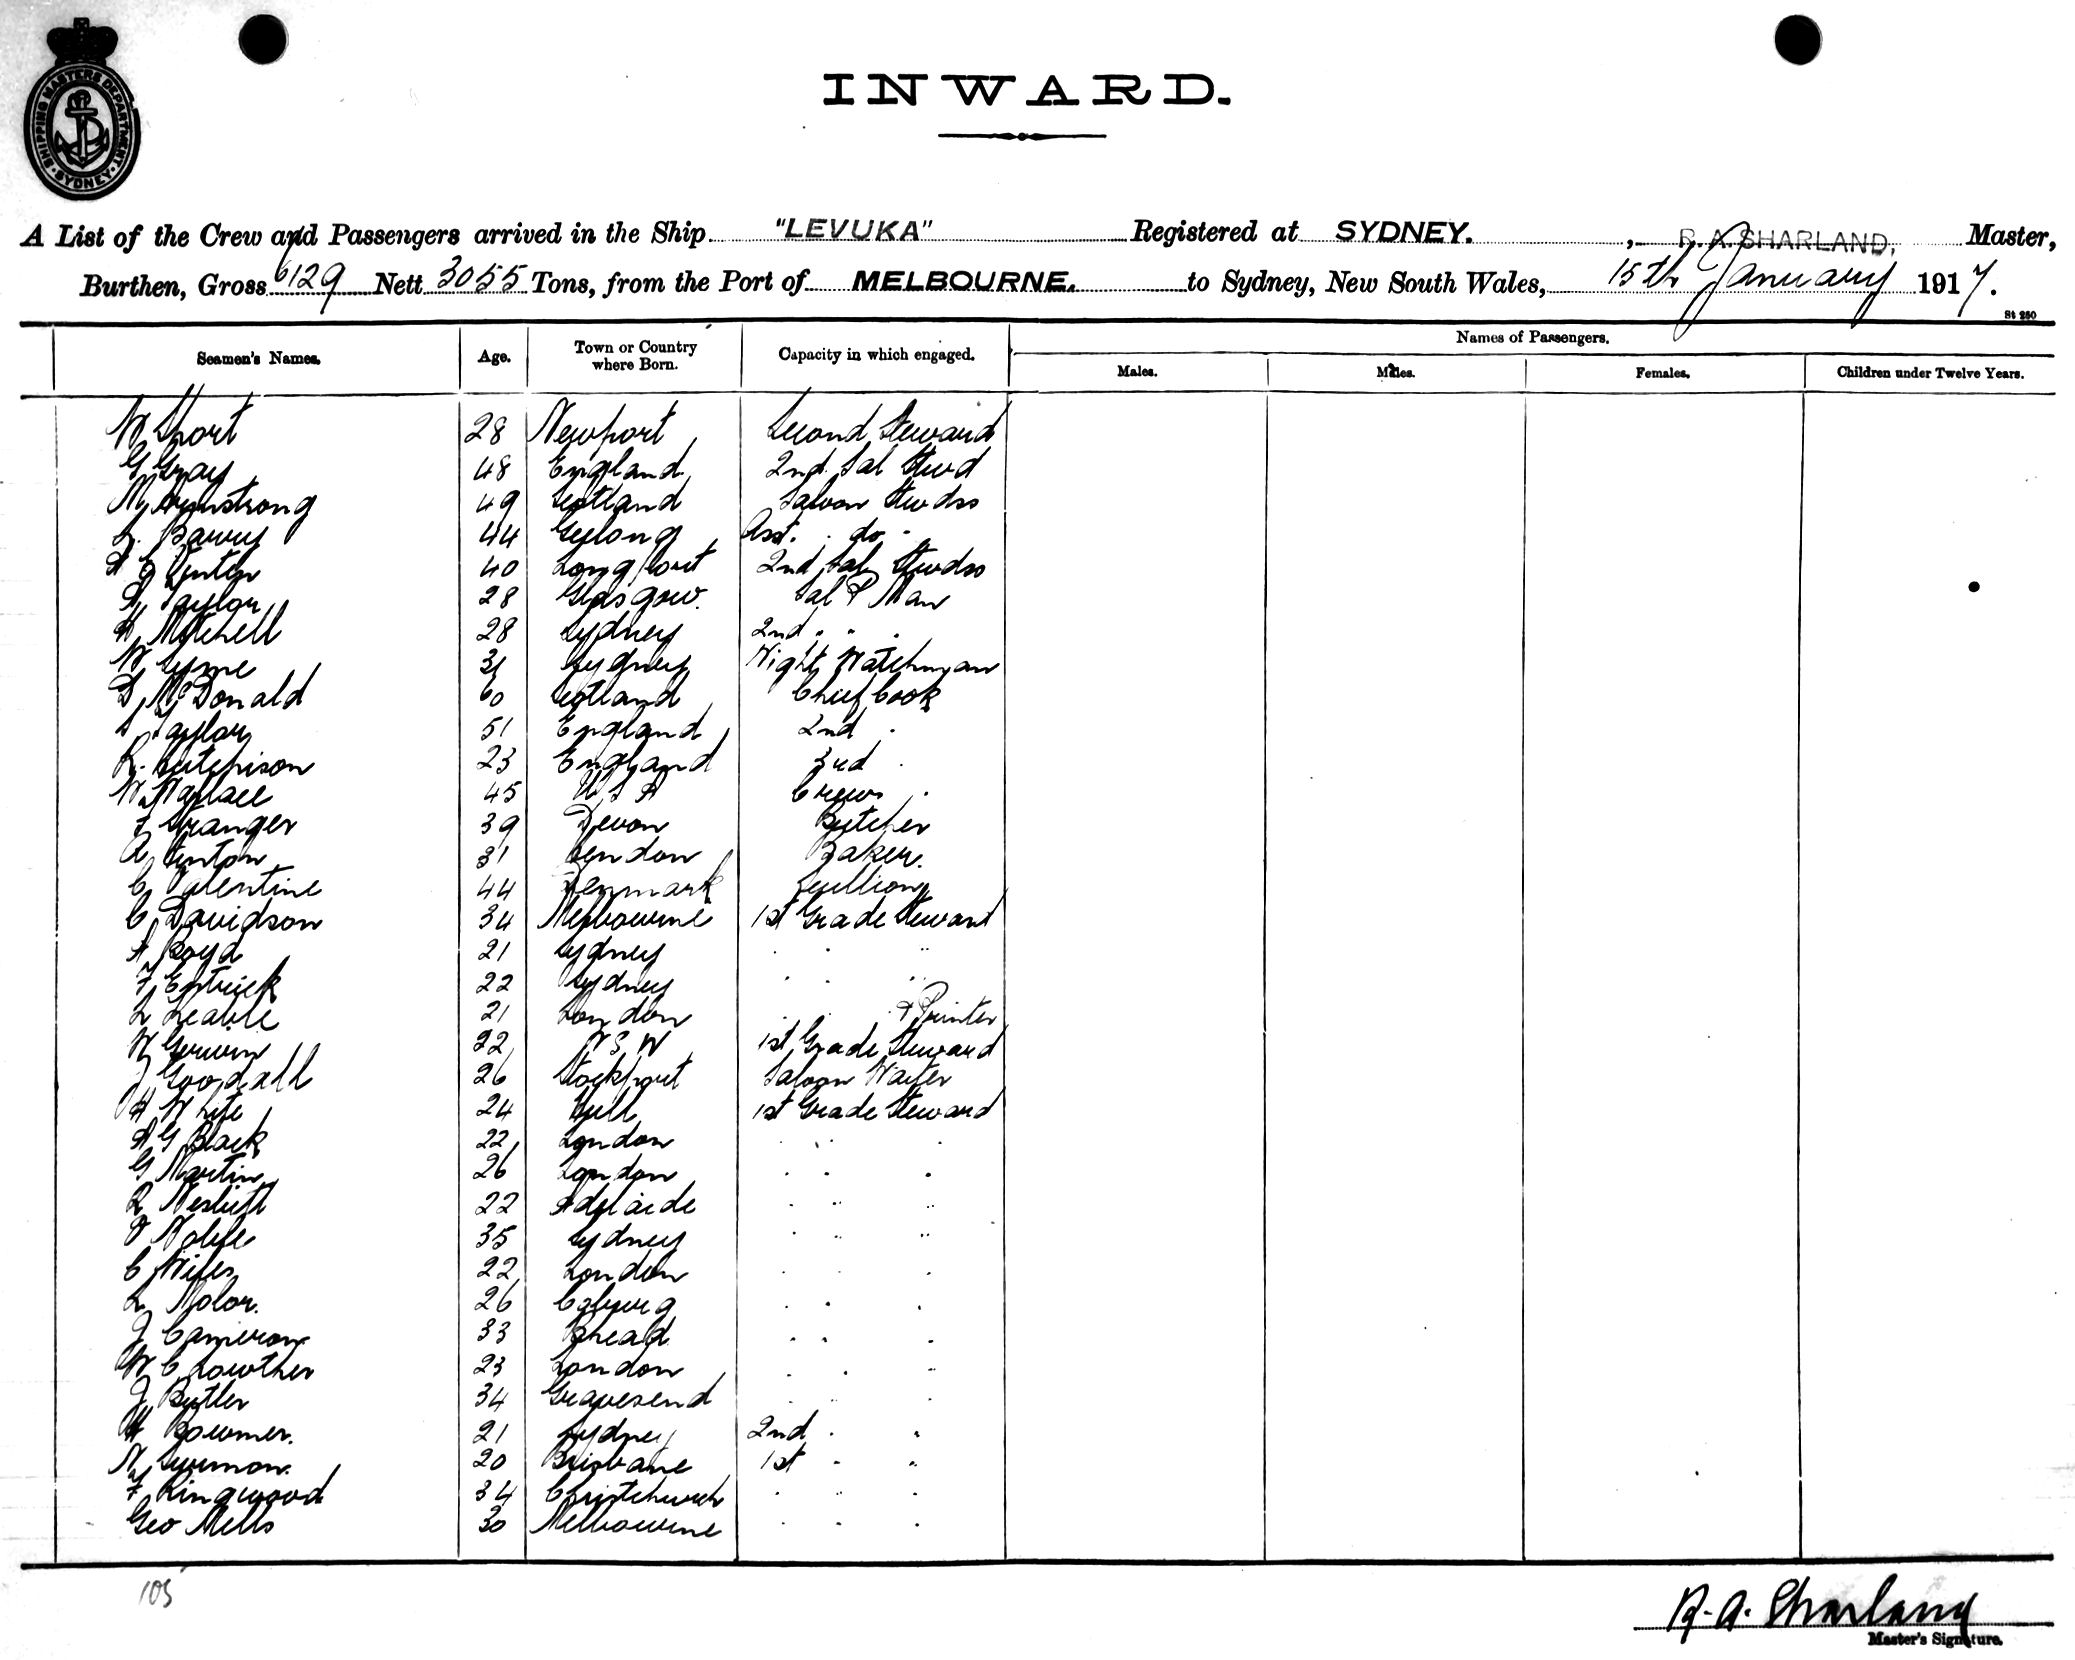 SHIPPING MASTERS DEPARTMENT
SYDNEY
INWARD.
A List of the Crew and Passengers arrived in the Ship "LEVUKA" Registered at SYDNEY. , R. A. SHARLAND, Master,
Burthen, Gross 6129 Nett 3055 Tons, from the Port of MELBOURNE. to Sydney, New South Wales, 15th January 1917.
St 250
Seamen's Names. Age. Town or Country where Born. Capacity in which engaged. Names of Passengers.
Males. Males. Females. Children under Twelve Years.
W Short 28 Newport Second Steward
G Gray 48 England 2nd Sal Stwd
M Armstrong 49 Scotland Saloon Stwdss
L. Barry 44 Geelong Asst. do
40 Longford 2nd Sal Stwdss
Taylor 28 Glasgow. Sal P Man
A Mitchell 28 Sydney 2nd " "
W Syme 31 Sydney Night Watchman
D McDonald 60 Scotland Chief Cook
Taylor 51 England 2nd "
R. Hutchison 23 England 3rd "
W Wallace 45 U S A Crews "
F Granger 39 Devon Butcher
A Fenton 31 London Baker.
C Valentine 44 Denmark Scullion
C Davidson 34 Melbourne 1st Grade Steward
A Boyd 21 Sydney " " "
F Entrick 22 Sydney " " "
L Leable 21 London " " " & Printer
W Gerwin 22 N S W 1st Grade Steward
J Goodall 26 Stockport Saloon Waiter
H White 24 Hull 1st Grade Steward
A G Black 22 London " " "
G Martin 26 London " " "
R Nesbitt 22 Adelaide " " "
Noble 35 Sydney " " "
C Wiles 22 London " " "
L Molor. 26 Coburg " " "
J Cameron 33 B'head " " "
W C Lowther 23 London " " "
J Butler 34 Gravesend " " "
H Bowmer. 21 Sydney 2nd " "
N Surmon. 20 Brisbane 1st " "
F Kingwood 34 Christchurch " " "
Geo Mells 30 Melbourne " " "
105
R. A. Sharland
Master's Signature.